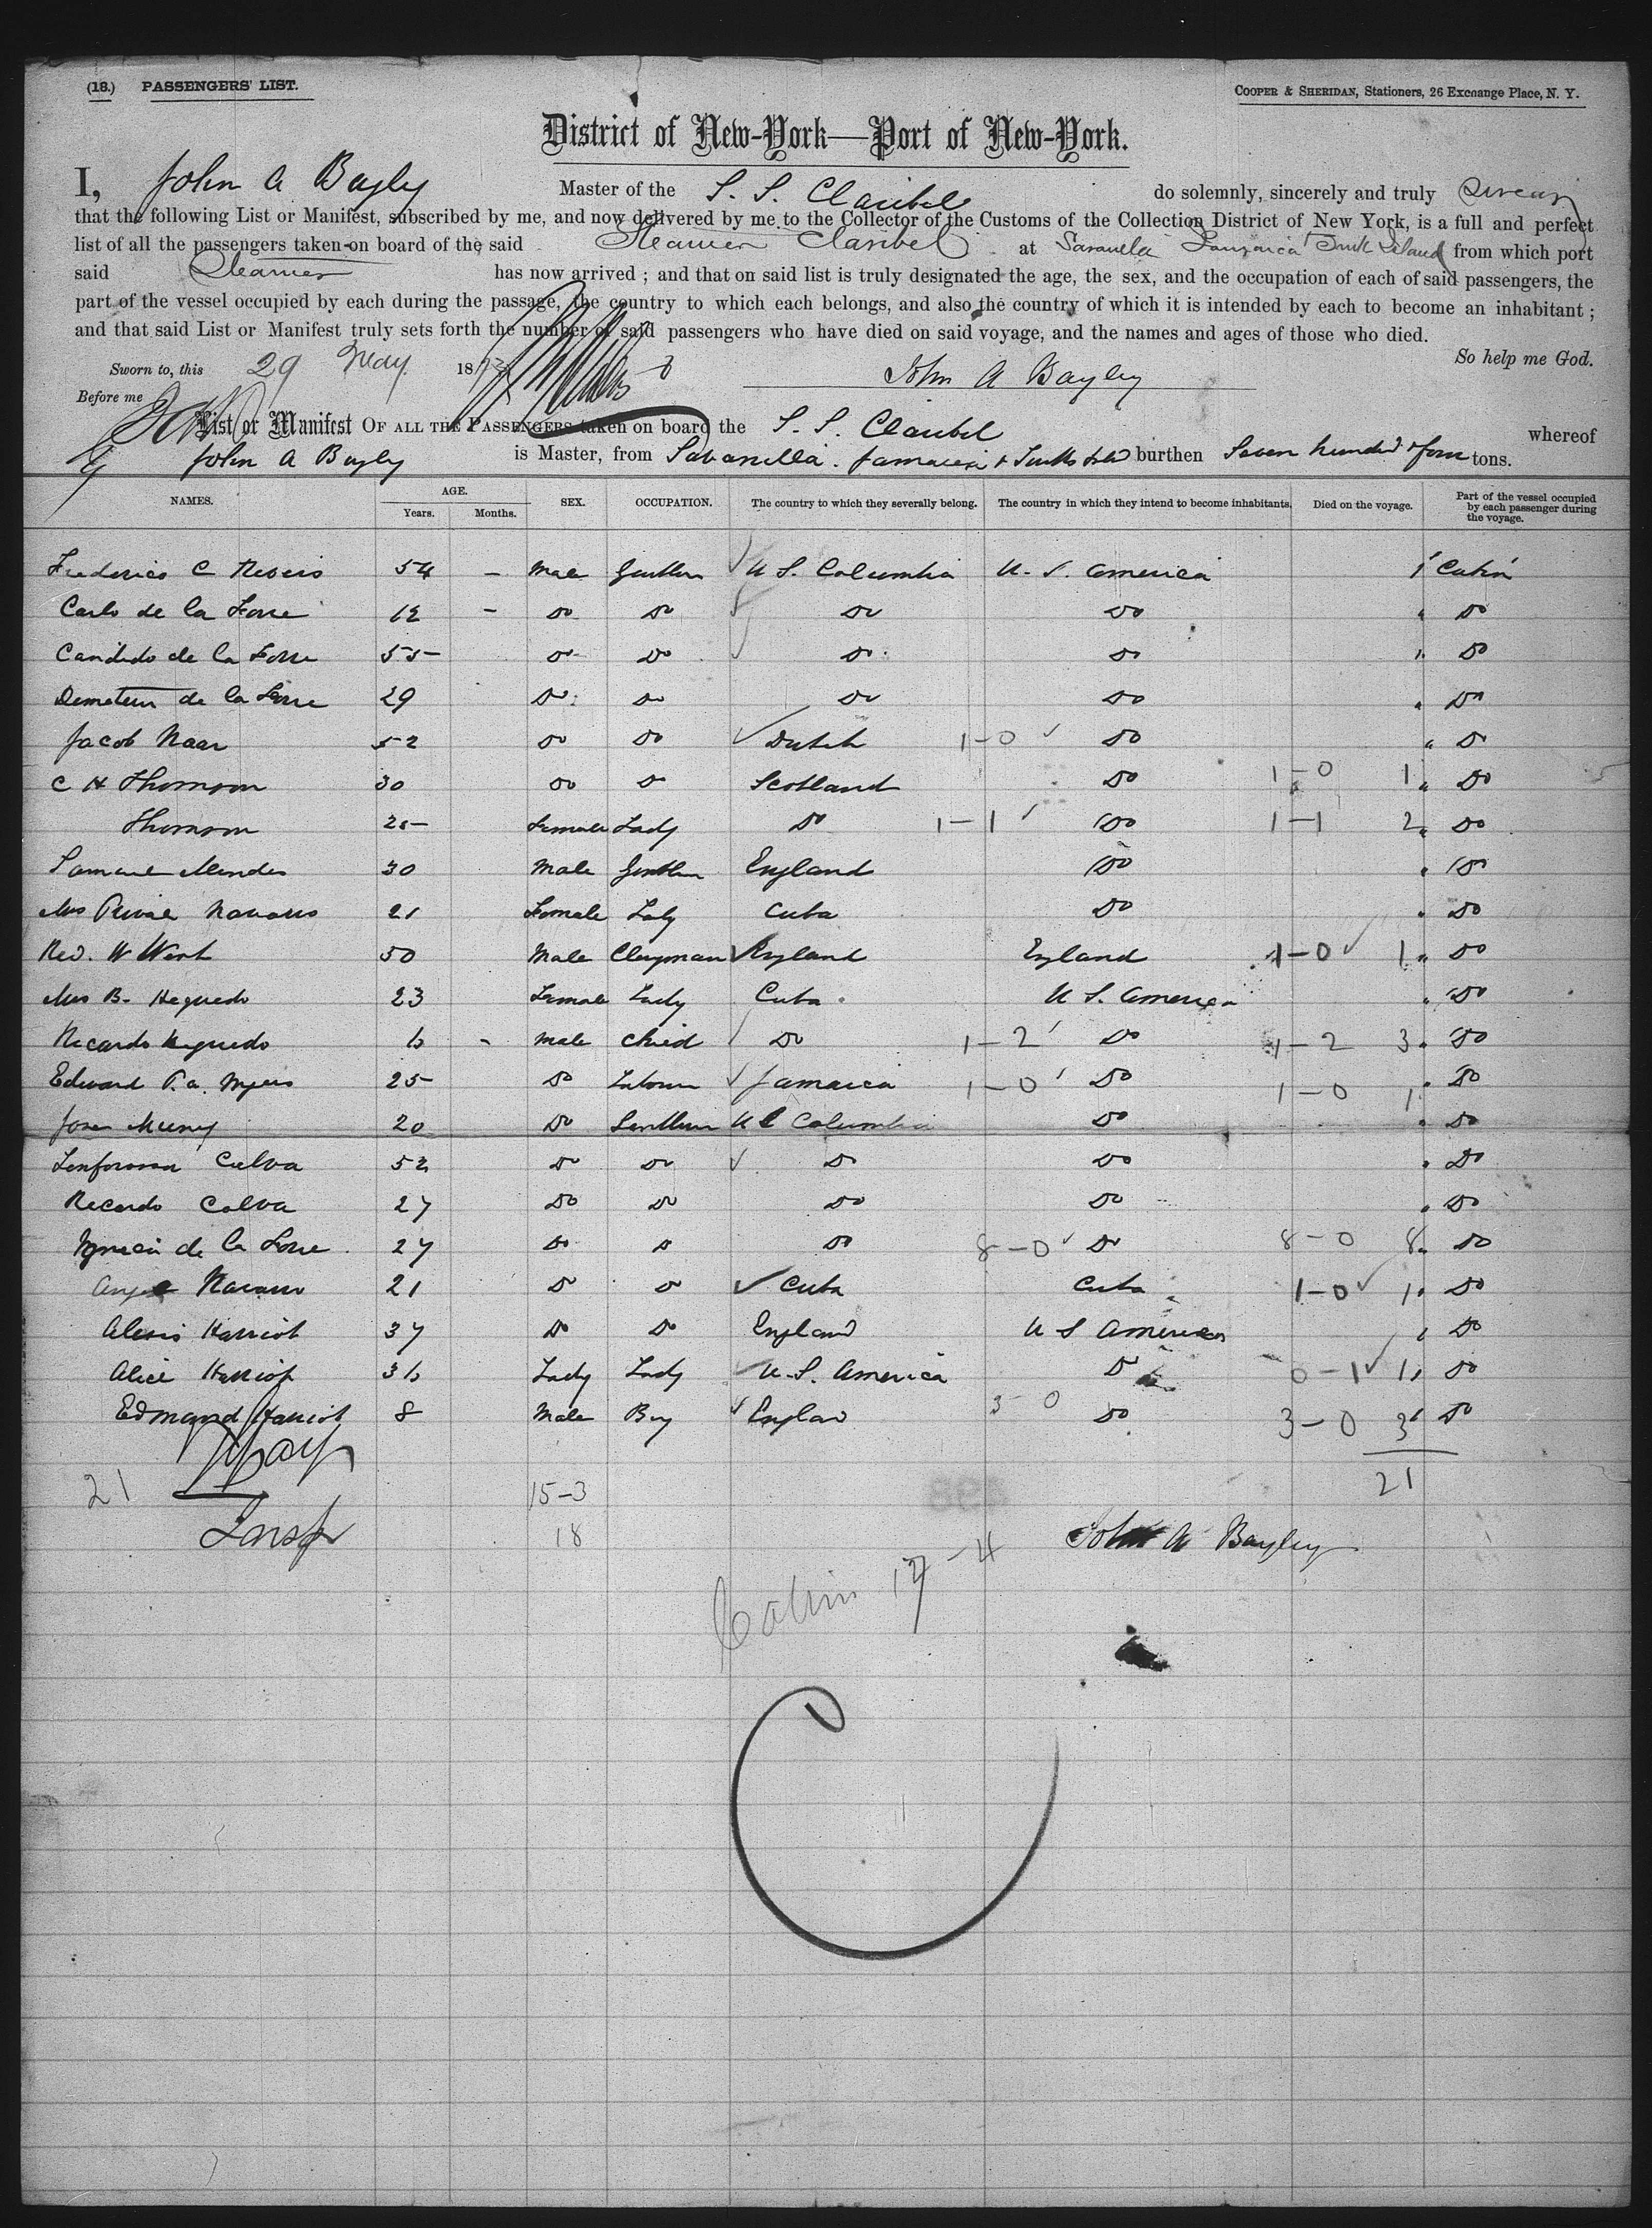 (18.) PASSENGERS' LIST.
COOPER & SHERIDAN, Stationers, 26 Exchange Place, N. Y.
District of New-York—Port of New-York.
I, John A Bayley Master of the S. S. Claribel do solemnly, sincerely and truly swear
that the following List or Manifest, subscribed by me, and now delivered by me to the Collector of the Customs of the Collection District of New York, is a full and perfect
list of all the passengers taken on board of the said Steamer Claribel at Savanilla Jamaica Turk Island from which port
said Steamer has now arrived ; and that on said list is truly designated the age, the sex, and the occupation of each of said passengers, the
part of the vessel occupied by each during the passage, the country to which each belongs, and also the country of which it is intended by each to become an inhabitant ;
and that said List or Manifest truly sets forth the number of said passengers who have died on said voyage, and the names and ages of those who died.
So help me God.
Sworn to, this 29 May 1873
John A Bayley
Before me
List or Manifest OF ALL THE PASSENGERS taken on board the S. S. Claribel whereof
John A Bayley is Master, from Savanilla. Jamaica & Turks Isld burthen Seven hundred & four tons.
NAMES. AGE. Years. Months. SEX. OCCUPATION. The country to which they severally belong. The country in which they intend to become inhabitants. Died on the voyage. Part of the vessel occupied by each passenger during the voyage.
Frederico C 54 – Male Gentlen U S. Columbia U. S. America 1 Cabin
Carlo de la Torre 12 – Do Do Do Do " Do
Candido de la Torre 55 Do Do Do Do " Do
de la Torre 29 Do Do Do Do " Do
Jacob Naar 52 Do Do Dutch 1–0 Do " Do
C H Thomson 30 Do Do Scotland Do 1–0 1 " Do
Thomson 25 Female Lady Do 1–1 Do 1–1 2 " Do
Samuel Mendes 30 Male Gentlen England Do " Do
Mrs Navarro 21 Female Lady Cuba Do " Do
Rev. W West 50 Male Clergyman England England 1–0 1 " Do
Mrs B. 23 Female Lady Cuba U S. America " Do
Ricardo 6 – Male Child Do 1–2 Do 1–2 3 " Do
Edward P. a. Myers 25 Do Laborer Jamaica 1–0 Do 1–0 1 " Do
Jose 20 Do Gentlen U S Columbia Do " Do
Calva 52 Do Do Do Do " Do
Ricardo Calva 27 Do Do Do Do " Do
Ignacia de la Torre 27 Do Do Do 8–0 Do 8–0 8 " Do
Navarro 21 Do Do Cuba Cuba 1–0 1 " Do
Alexis Harriott 37 Do Do England U S America " Do
Alice Harriott 36 Lady Lady U. S. America Do 0–1 1 " Do
Edmund Harriott 8 Male Boy England 3 0 Do 3–0 3 " Do
21 15–3 21
Insp 18 John A Bayley
Cabin 17–4